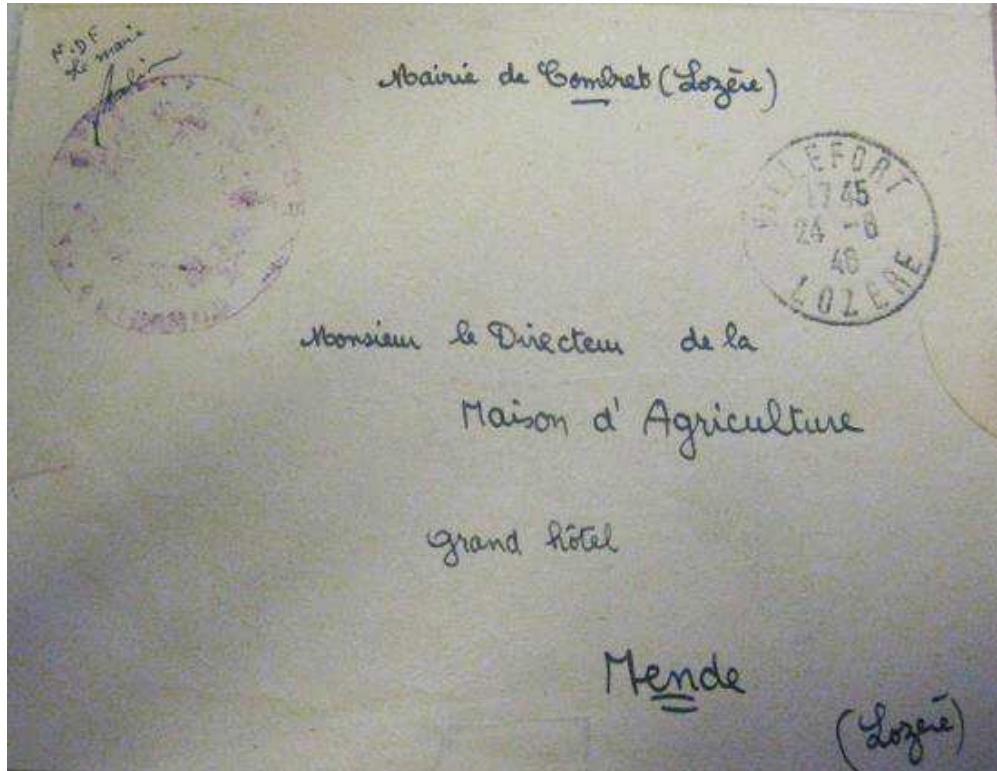 N.D.F
Le maire
Mairie de Combret (Lozère)
VILLEFORT
17 45
24 -8
46
LOZERE
Monsieur le Directeur de la
Maison d'Agriculture
grand hôtel
Mende
(Lozère)